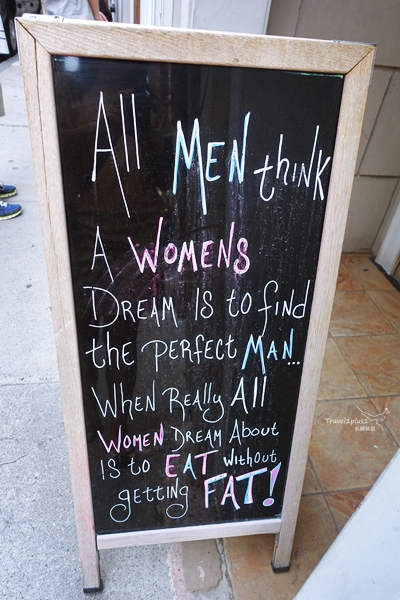 All MEN think
A WOMENS
DREAM IS to find
the Perfect MAN...
WHEN Really All
WOMEN DREAM About
IS to EAT without
getting FAT!
Travel1plus1